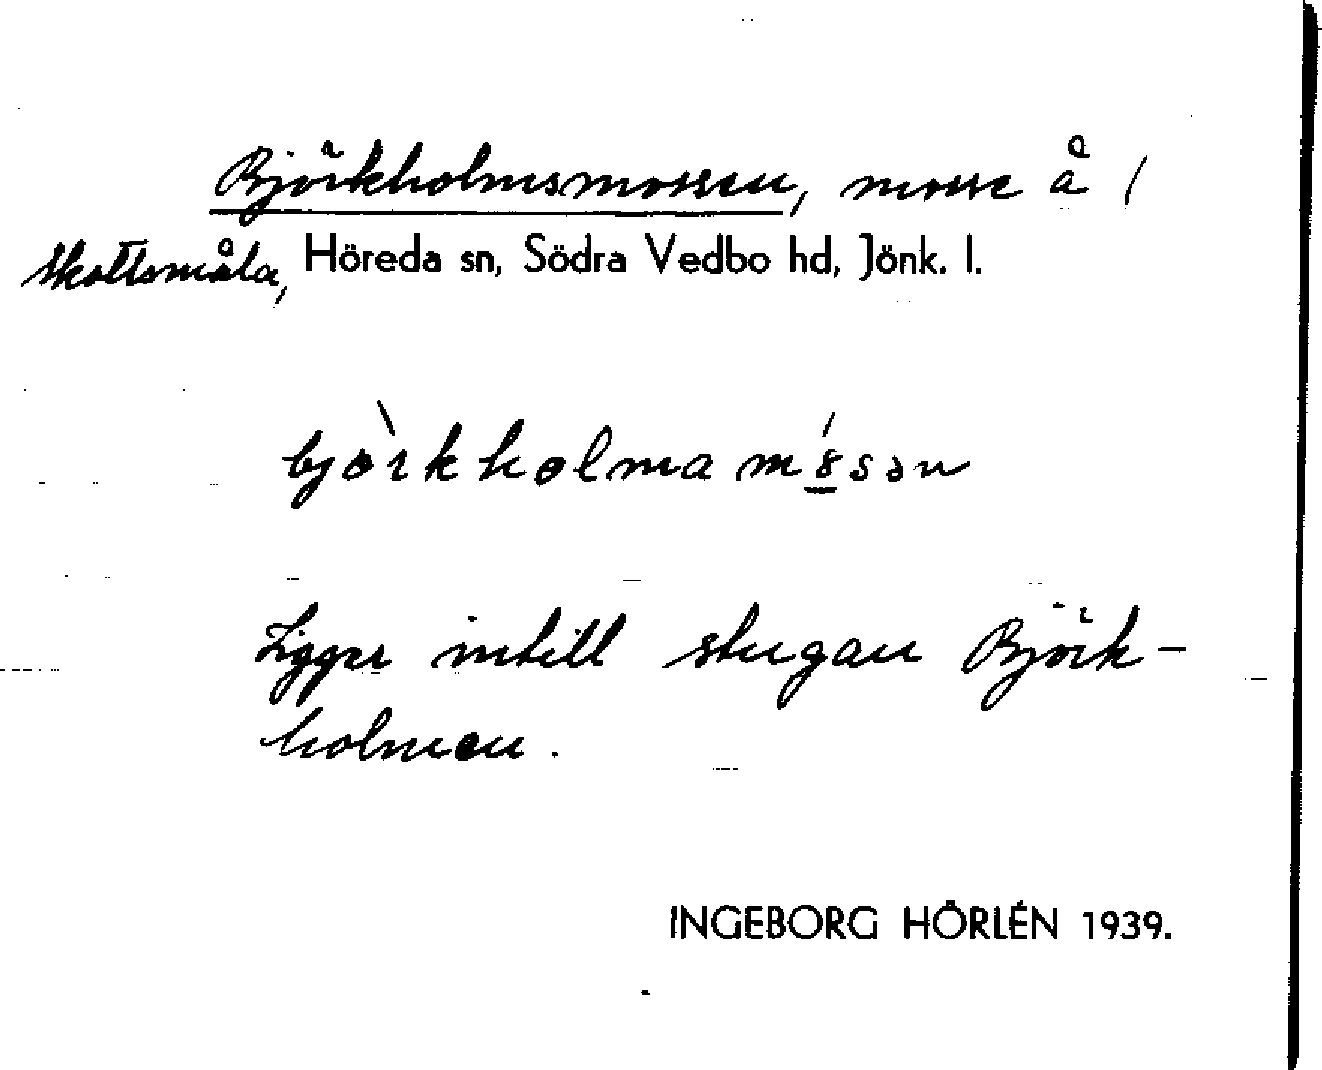 Björkholmsmossen, mosse å /
Skottsmåla, Höreda sn, Södra Vedbo hd, Jönk. l.
Ligger intill stugan Björk-
holmen.
INGEBORG HÖRLÉN 1939.